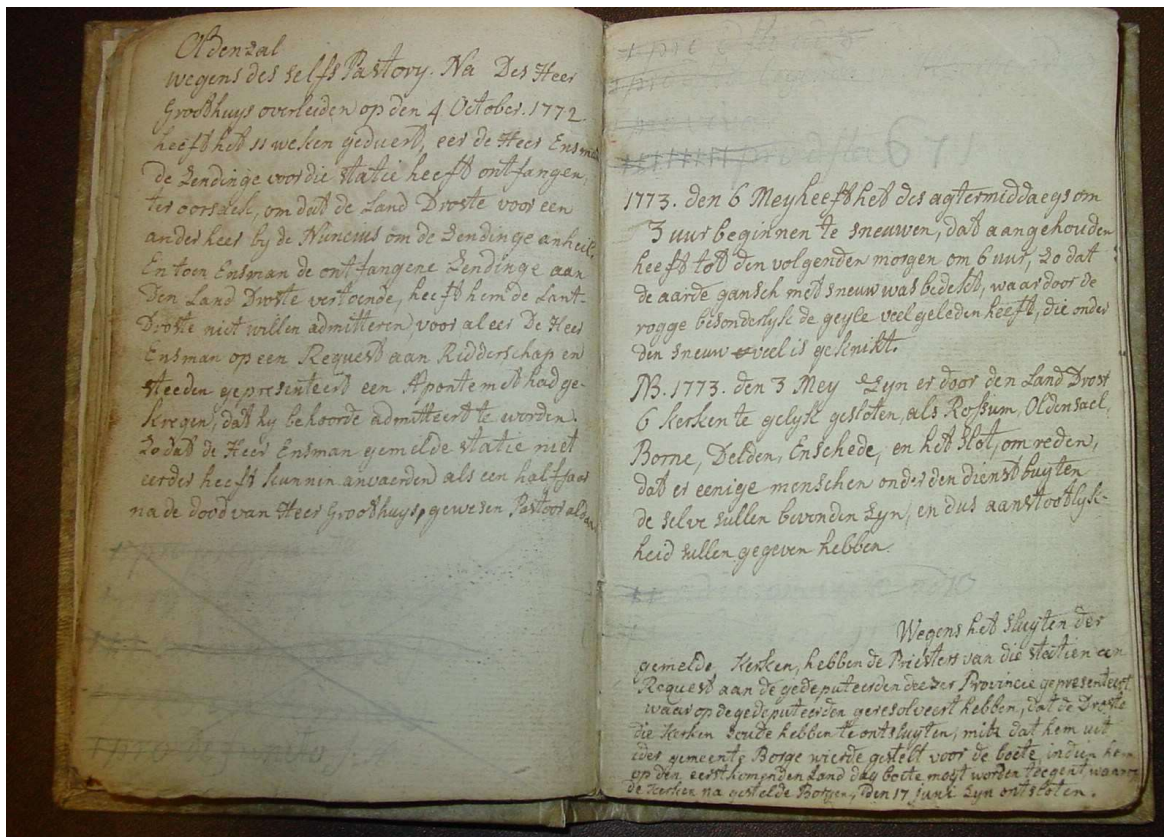 Oldenzal
wegens des selfs Pastory. Na Des Heer
Groothuys overleiden op den 4 October. 1772
heeft het 11 weken geduert, eer de Heer Ensman
de Zendinge voor die statie heeft ontfangen,
ter oorsaek, om dat de Land Droste voor een
ander heer by de Nuncius om de Zendinge anheil.
En toen Ensman de ontfangene Zendinge aan
Den Land Droste vertoende, heeft hem de Lant-
Droste niet willen admitteren, voor al eer De Heer
Ensman op een Request aan Ridderschap en
steeden gepresenteert een Apontement had ge-
kregen, dat hy behoorde admitteert te worden.
Zo dat de Heer Ensman gemelde statie niet
eerder heeft kunnen anvaerden als een half jaar
na de dood van Heer Groothuys, gewesen Pastoor aldaar
671
1773. den 6 Mey heeft het des agtermiddaegs om
3 uur beginnen te sneuwen, dat aangehouden
heeft tot den volgenden morgen om 6 uur, zo dat
de aarde gansch met sneuw was bedekt, waar door de
rogge besonderlyk de geyle veel geleden heeft, die onder
den sneuw veel is geknikt.
NB. 1773. den 3 Mey Zyn er door den Land Drost
6 kerken te gelyk gesloten, als Rossum, Oldensael,
Borne, Delden, Enschede, en het Slot, om reden,
dat er eenige menschen onder den dienst buyten
de selve sullen bevonden Zyn, en dus aanstootlyk-
heid sullen gegeven hebben.
Wegens het sluyten der
gemelde Kerken, hebben de Priesters van die statien een
Request aan de gedeputeerden deezer Provincie gepresenteert
waar op de gedeputeerden geresolveert hebben, dat de Droste
die Kerken soude hebben te ontsluyten, mits dat hem uit
ider gemeente Borge wierde gestelt voor de boete, indien hem
op den eerstkomenden Land dag boete mogt worden toegent, waarop
de Kerken na gestelde Borgen, den 17 juni Zyn ontsloten.